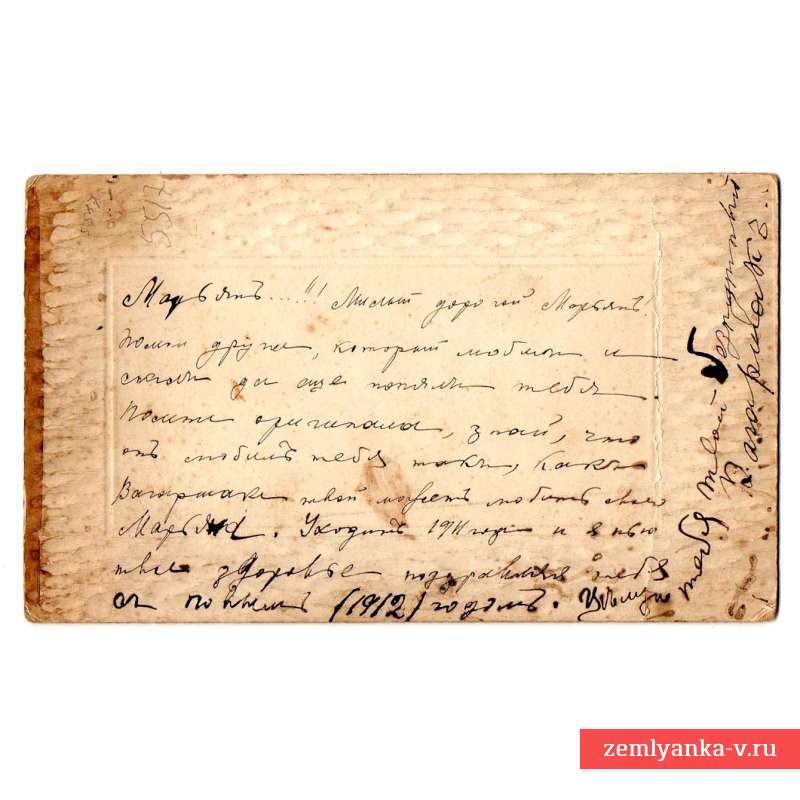 5517
Марьянъ.....!!! Милый дорогой Марьянъ!
Помни друга, который любилъ и
да еще понялъ тебя.
Помни оригинала, знай, что
онъ любилъ тебя такъ, какъ
Вагаршакъ твой можетъ любить своего
Марьяна. Уходитъ 1911 годъ и я пью
твое здоровье поздравляя тебя
съ новымъ (1912) годомъ. Цѣлую
тебя твой безпутный
Вагаршакъ...
zemlyanka-v.ru